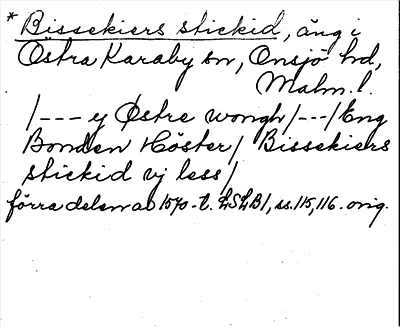 * Bissekiers stickid, äng i
Östra Karaby sn, Onsjö hd,
Malm. l.
/--- y Østre wongh/---/Eng
Bonden Höster/ Bissekiers
stickid vj less/
förra delen av 1570-t. LSLB1, ss. 115, 116. orig.